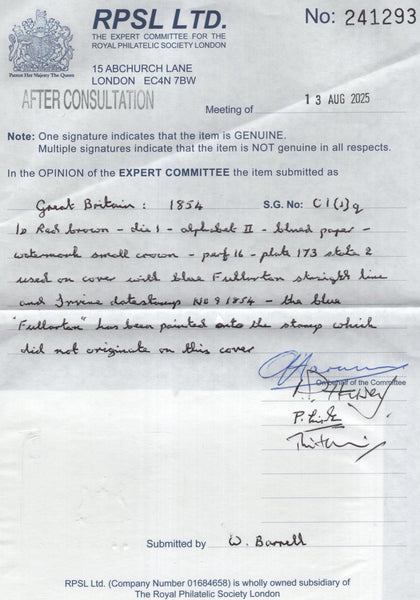 RPSL LTD.
THE EXPERT COMMITTEE FOR THE
ROYAL PHILATELIC SOCIETY LONDON
No: 241293
Patron Her Majesty The Queen
15 ABCHURCH LANE
LONDON EC4N 7BW
AFTER CONSULTATION
Meeting of 13 AUG 2025
Note: One signature indicates that the item is GENUINE.
Multiple signatures indicate that the item is NOT genuine in all respects.
In the OPINION of the EXPERT COMMITTEE the item submitted as
Great Britain: 1854 S.G. No: C1(1)q
1d Red brown - die 1 - alphabet II - blued paper -
watermark small crown - perf 16 - plate 173 state 2
used on cover with blue Fullarton straight line
and Irvine datestamp NO 9 1854 - the blue
"Fullarton" has been painted onto the stamp which
did not originate on this cover
On behalf of the Committee
Submitted by W. Barrell
RPSL Ltd. (Company Number 01684658) is wholly owned subsidiary of
The Royal Philatelic Society London